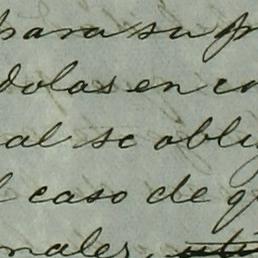 para su pr
dolas en co
al se obli
l caso de q
nales,